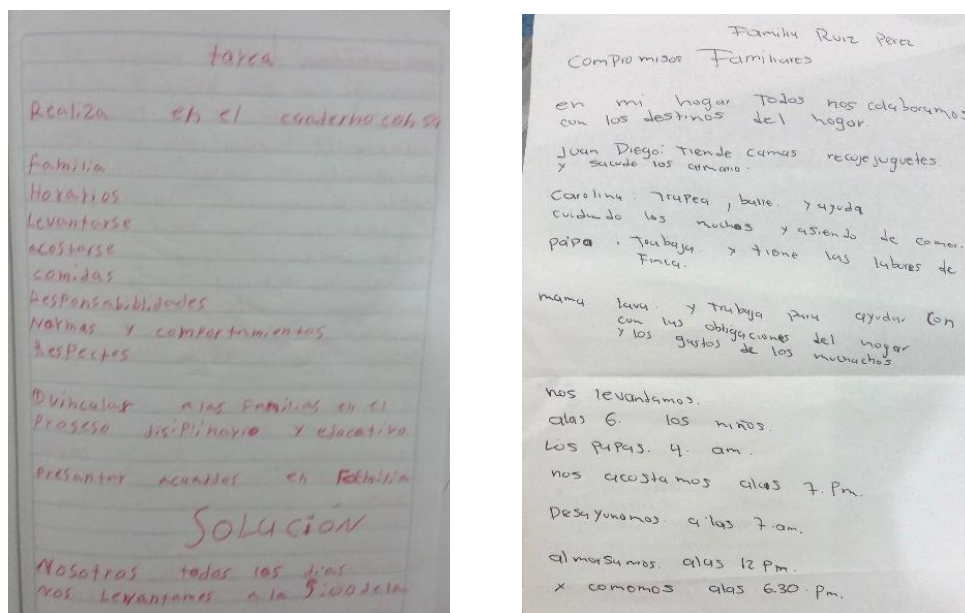 tarea
Realiza en el cuaderno con su
familia
Horarios
Levantarse
acostarse
comidas
Responsabiblidades
Normas y comportamientos
Respectes
vincular a las Familias en el
Proseso disiplinario y educativo
Presantar acuardos en Familia
SOLUCIÓN
Nosotros todos los dias
nos Levantamos a la 5:00 de la
Familia Ruiz Perez
compromisos Familiares
en mi hogar Todos nos colaboramos
con los destinos del hogar.
Juan Diego: Tiende camas recoje juguetes
y sacude los armario.
Carolina: Trapea, barre. y ayuda
cuidando los muchos y asiendo de comer.
papa. Trabaja y tiene las labores de
Finca.
mama. lava. y Trabaja para ayudar con
con las obligaciones del hogar
y los gastos de los muchachos
nos levantamos.
alas 6. los niños.
Los papas. 4. am.
nos acostamos alas 7. Pm.
Desayunamos. a las 7. am.
almorsamos. alas 12 Pm.
x comemos alas 6.30. Pm.